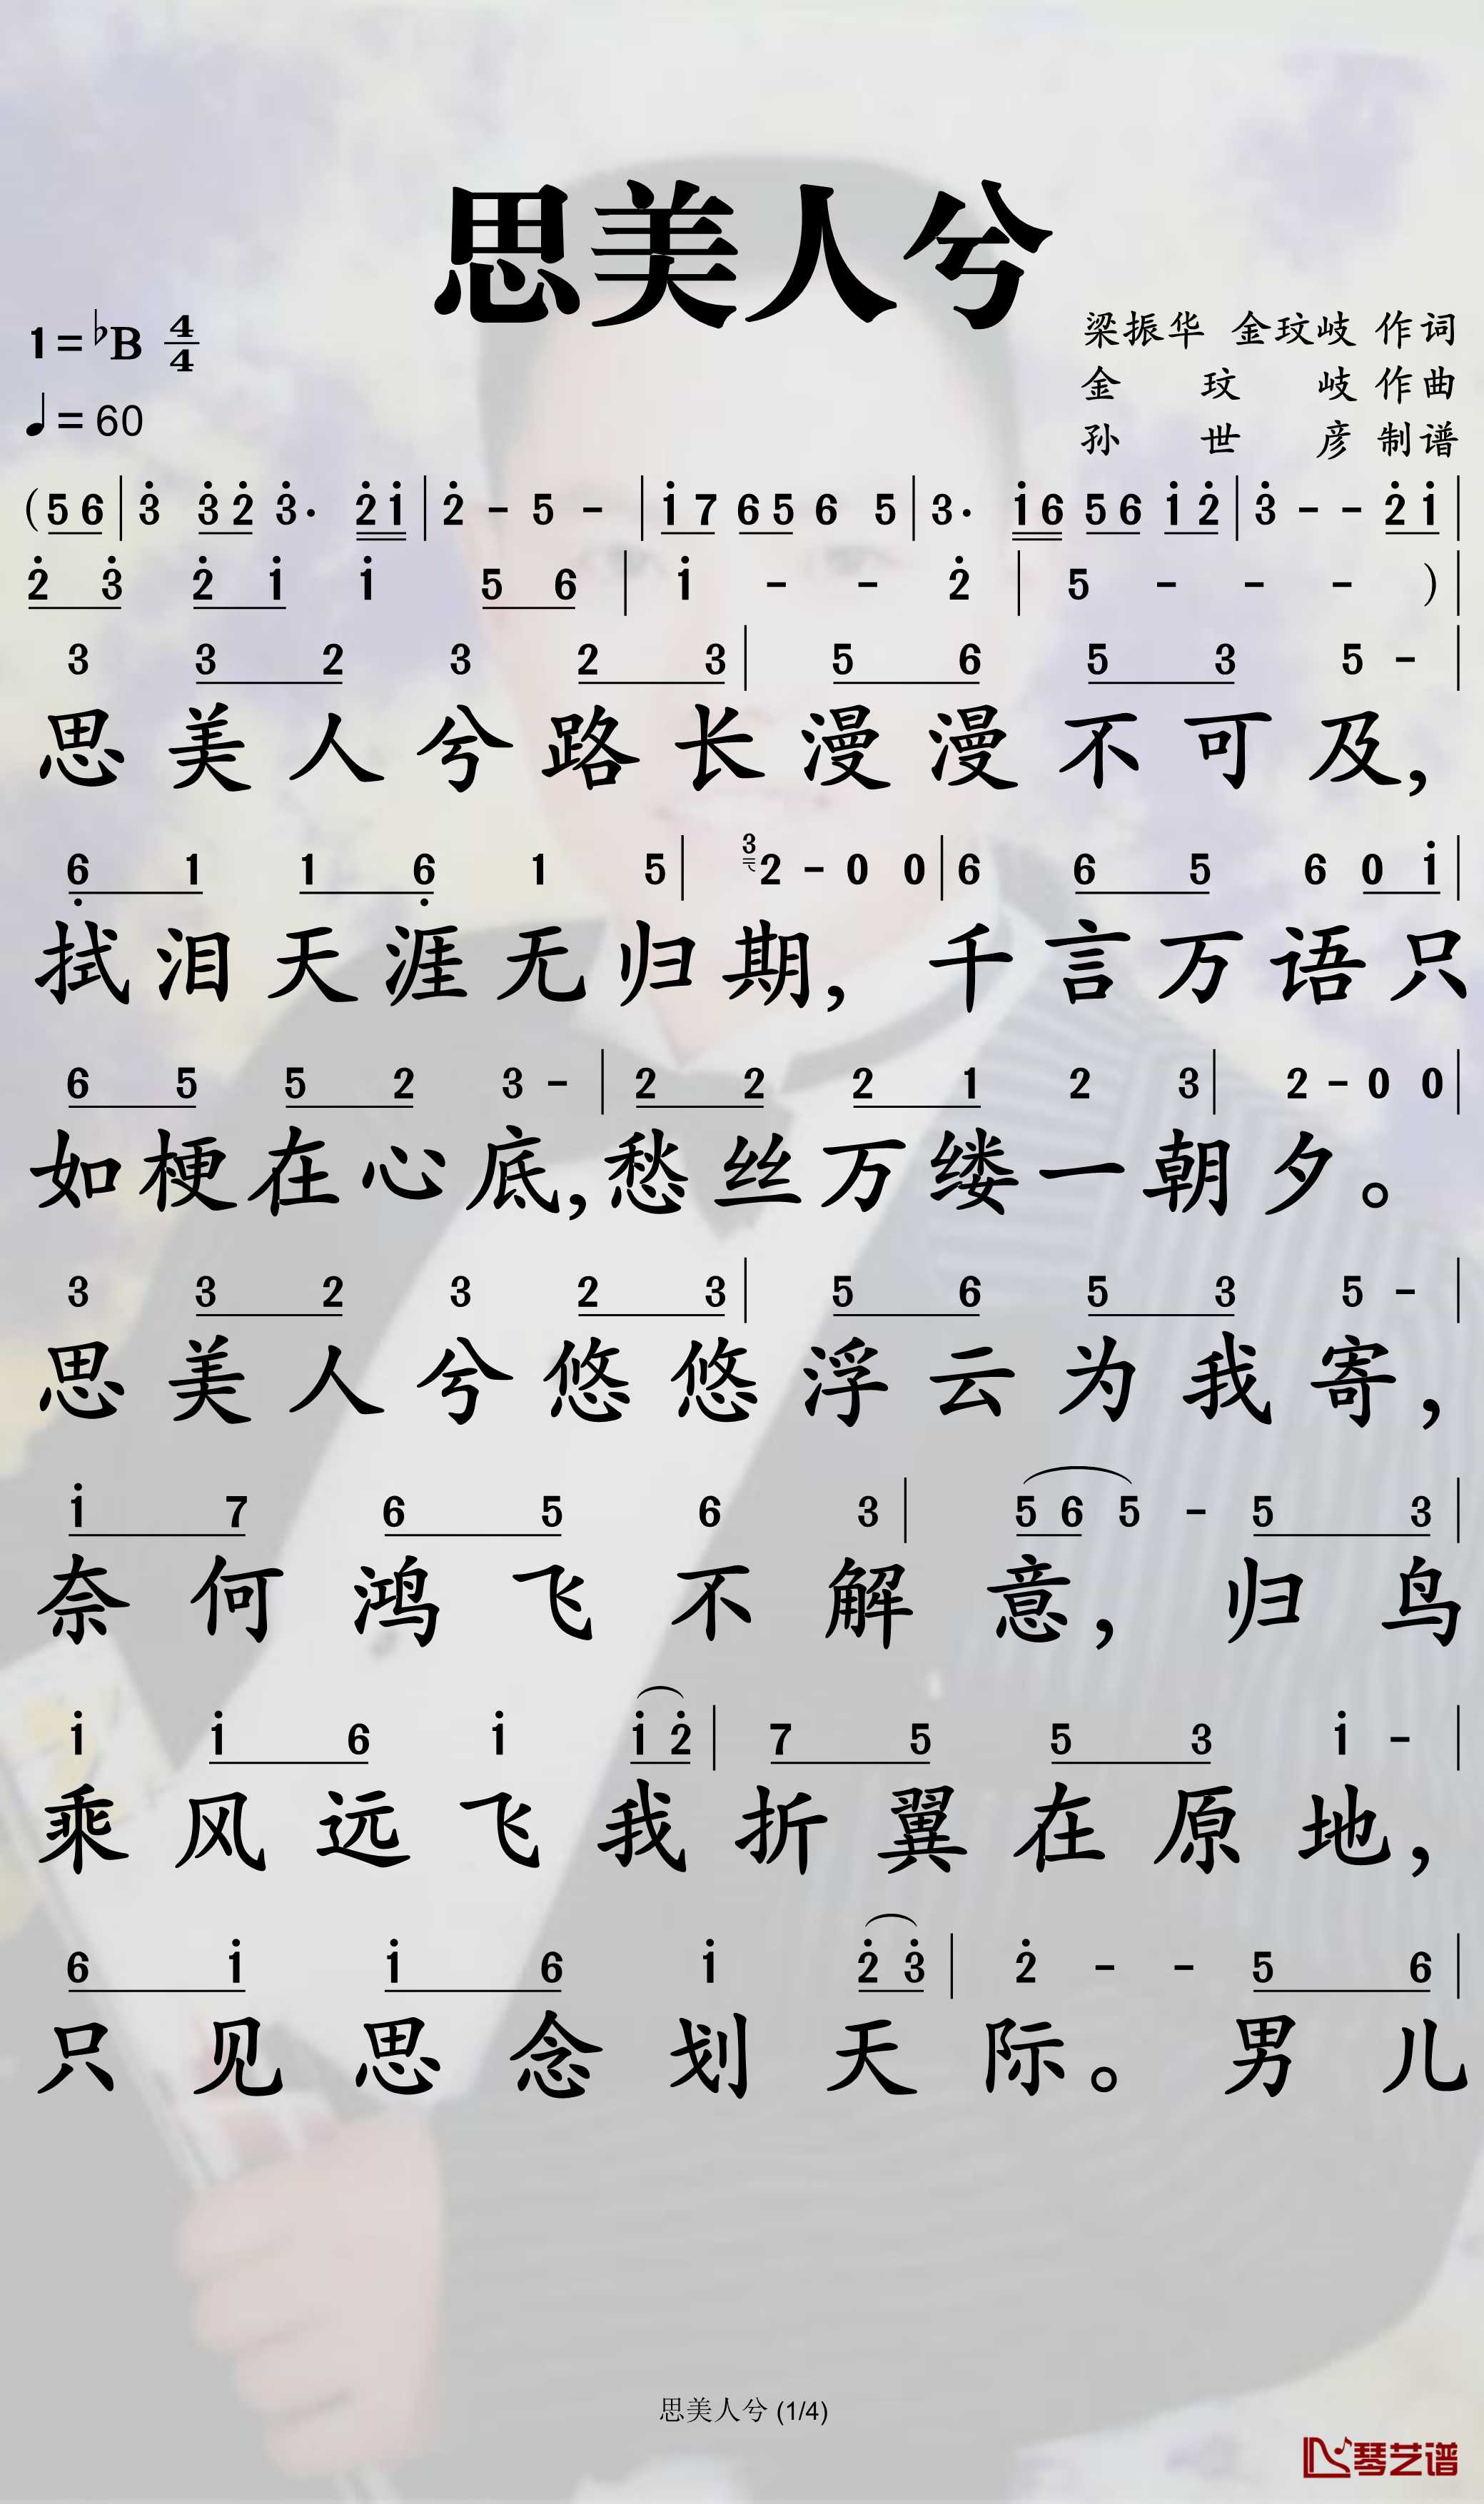 思美人兮
1=♭B 4/4
梁振华 金玟岐 作词
♩=60
金 玟 岐 作曲
孙 世 彦 制谱
(5 6 | 3̇ 3̇ 2̇ 3̇· 2̇ 1̇ | 2̇ - 5 - | 1̇ 7 6 5 6 5 | 3· 1̇ 6 5 6 1̇ 2̇ | 3̇ - - 2̇ 1̇ |
2̇ 3̇ 2̇ 1̇ 1̇ 5 6 | 1̇ - - 2̇ | 5 - - - ) |
3 3 2 3 2 3 | 5 6 5 3 5 - |
思美人兮路长漫漫不可及,
6̣ 1 1 6̣ 1 5 | 3 2 - 0 0 | 6 6 5 6 0 1̇ |
拭泪天涯无归期, 千言万语只
6 5 5 2 3 - | 2 2 2 1 2 3 | 2 - 0 0 |
如梗在心底,愁丝万缕一朝夕。
3 3 2 3 2 3 | 5 6 5 3 5 - |
思美人兮悠悠浮云为我寄,
1̇ 7 6 5 6 3 | 5 6 5 - 5 3 |
奈何鸿飞不解意, 归鸟
1̇ 1̇ 6 1̇ 1̇ 2̇ | 7 5 5 3 1̇ - |
乘风远飞我折翼在原地,
6 1̇ 1̇ 6 1̇ 2̇ 3̇ | 2̇ - - 5 6 |
只见思念划天际。男儿
思美人兮 (1/4)
琴艺谱